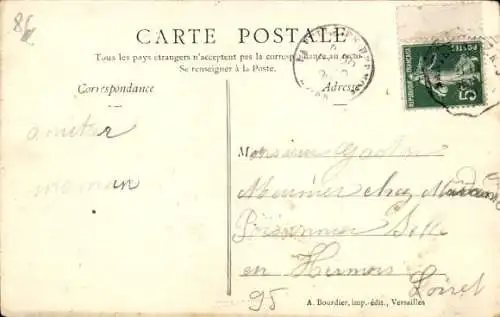 86
CARTE POSTALE
Tous les pays étrangers n'acceptent pas la correspondance au recto
Se renseigner à la Poste.
Correspondance
Adresse
REPUBLIQUE FRANÇAISE
POSTES
5
amitier
maman
Monsieur Gaston
Meunier chez
Selle
en Hermois
Loiret
95
A. Bourdier, imp.-édit., Versailles